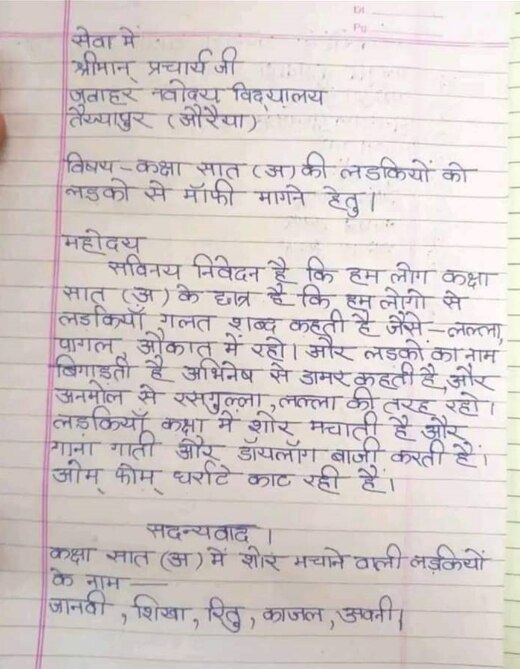 Dt
Pg
सेवा में
श्रीमान् प्रचार्य जी
जवाहर नवोदय विद्यालय
तैय्यापुर (औरैया)
विषय - कक्षा सात (अ) की लडकियों को
लडको से मॉफी मागने हेतु।
महोदय
सविनय निवेदन है कि हम लोग कक्षा
सात (अ) के छात्र है कि हम लोगो से
लडकियाँ गलत शब्द कहती है जैसे – लल्ला,
पागल औकात में रहो। और लडकों का नाम
बिगाडती है अभिनेष से डामर कहती है, और
अनमोल से रसगुल्ला, लल्ला की तरह रहो।
लडकियाँ कक्षा में शोर मचाती है और
गाना गाती और डॉयलॉग बाजी करती हैं।
ओम् फोम् धर्राटे काट रही हैं।
सदन्यवाद ।
कक्षा सात (अ) में शोर मचाने वाली लड़कियों
के नाम —
जानवी, शिखा, रितु, काजल, अवनी।